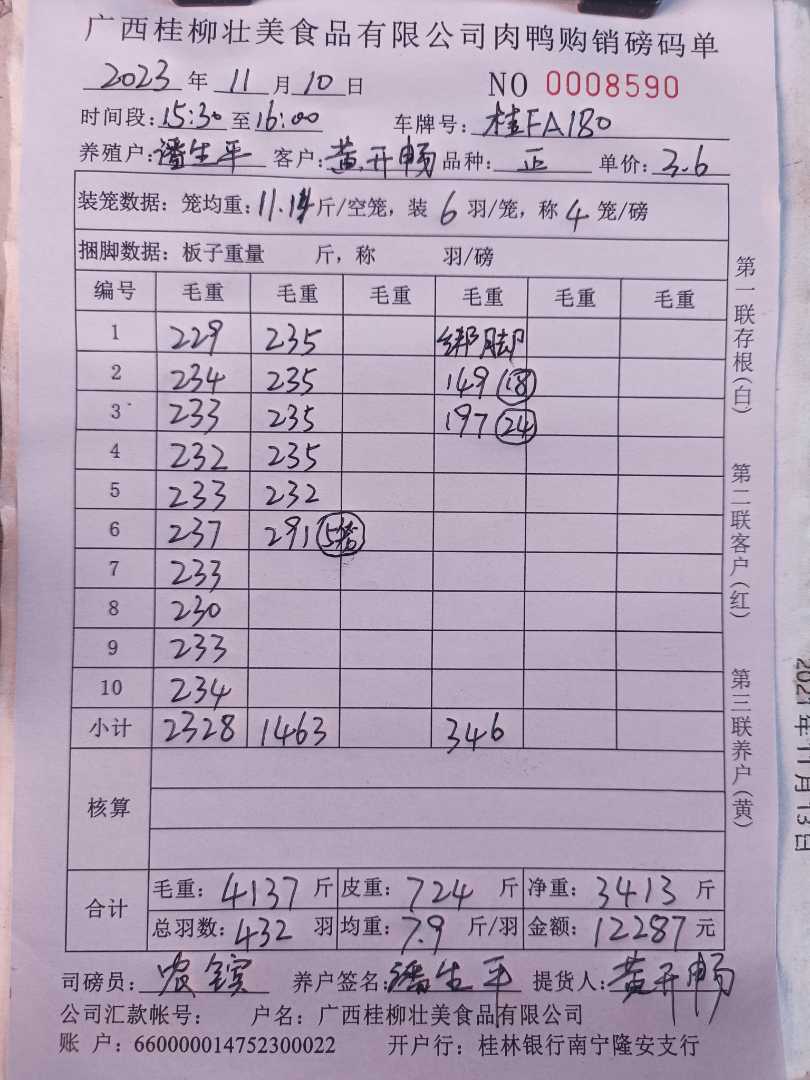 广西桂柳壮美食品有限公司肉鸭购销磅码单
2023 年 11 月 10 日 NO 0008590
时间段: 15:30 至 16:00 车牌号: 桂FA180
养殖户: 潘生平 客户: 黄开畅 品种: 正 单价: 3.6
装笼数据: 笼均重: 11.14 斤/空笼, 装 6 羽/笼, 称 4 笼/磅
捆脚数据: 板子重量 斤, 称 羽/磅
编号 毛重 毛重 毛重 毛重 毛重 毛重
1 229 235 绑脚
2 234 235 149 (18)
3 233 235 197 (24)
4 232 235
5 233 232
6 237 291 (5笼)
7 233
8 230
9 233
10 234
小计 2328 1463 346
核算
合计 毛重: 4137 斤 皮重: 724 斤 净重: 3413 斤
总羽数: 432 羽 均重: 7.9 斤/羽 金额: 12287 元
司磅员: 农 养户签名: 潘生平 提货人: 黄开畅
公司汇款帐号: 户名: 广西桂柳壮美食品有限公司
账 户: 660000014752300022 开户行: 桂林银行南宁隆安支行
第一联存根(白)
第二联客户(红)
第三联养户(黄)
2021年11月13日